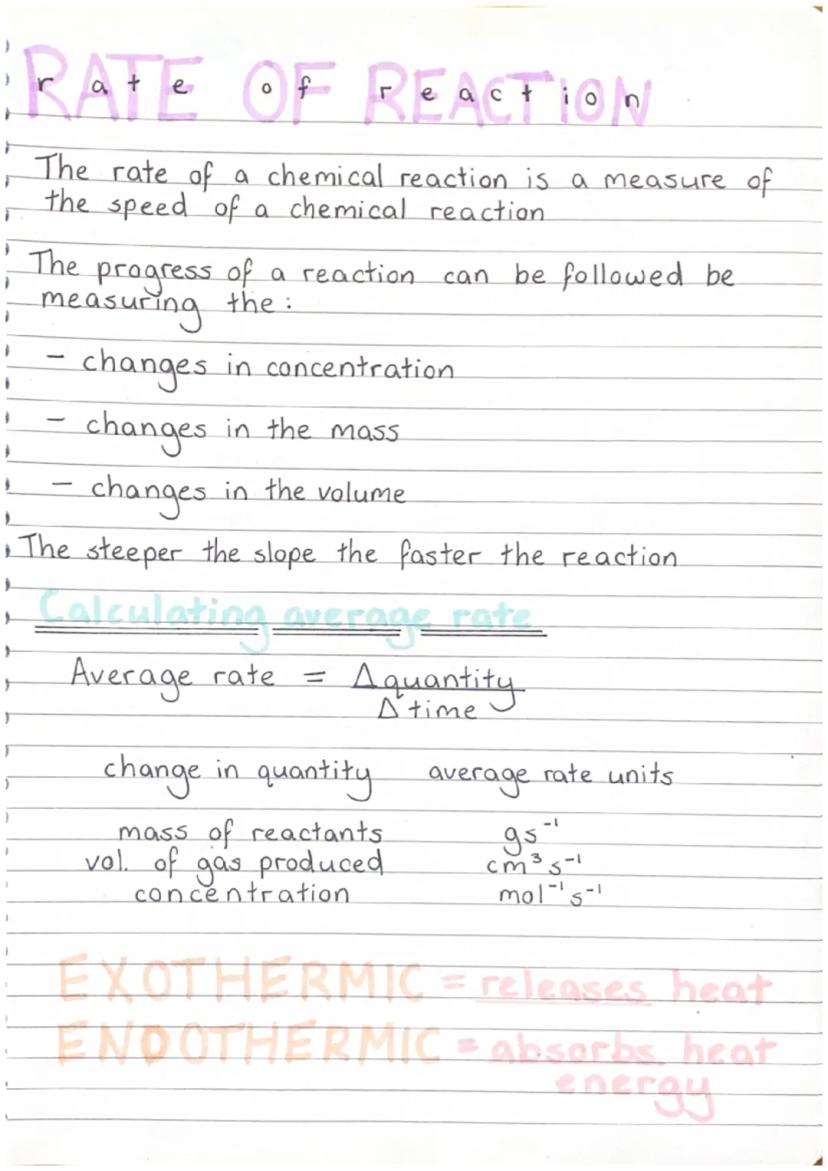 RATE OF REACTION
rate of reaction
The rate of a chemical reaction is a measure of
the speed of a chemical reaction
The progress of a reaction can be followed be
measuring the:
- changes in concentration
- changes in the mass
- changes in the volume
The steeper the slope the faster the reaction
Calculating average rate
Average rate = Δquantity
Δ time
change in quantity average rate units
mass of reactants gs⁻¹
vol. of gas produced cm³ s⁻¹
concentration mol⁻¹ s⁻¹
EXOTHERMIC = releases heat
ENDOTHERMIC = absorbs heat
energy